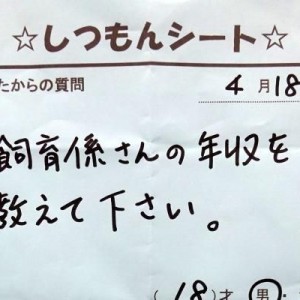 ☆しつもんシート☆
たからの質問
4月18
飼育係さんの年収を
教えて下さい。
(18)才 男・